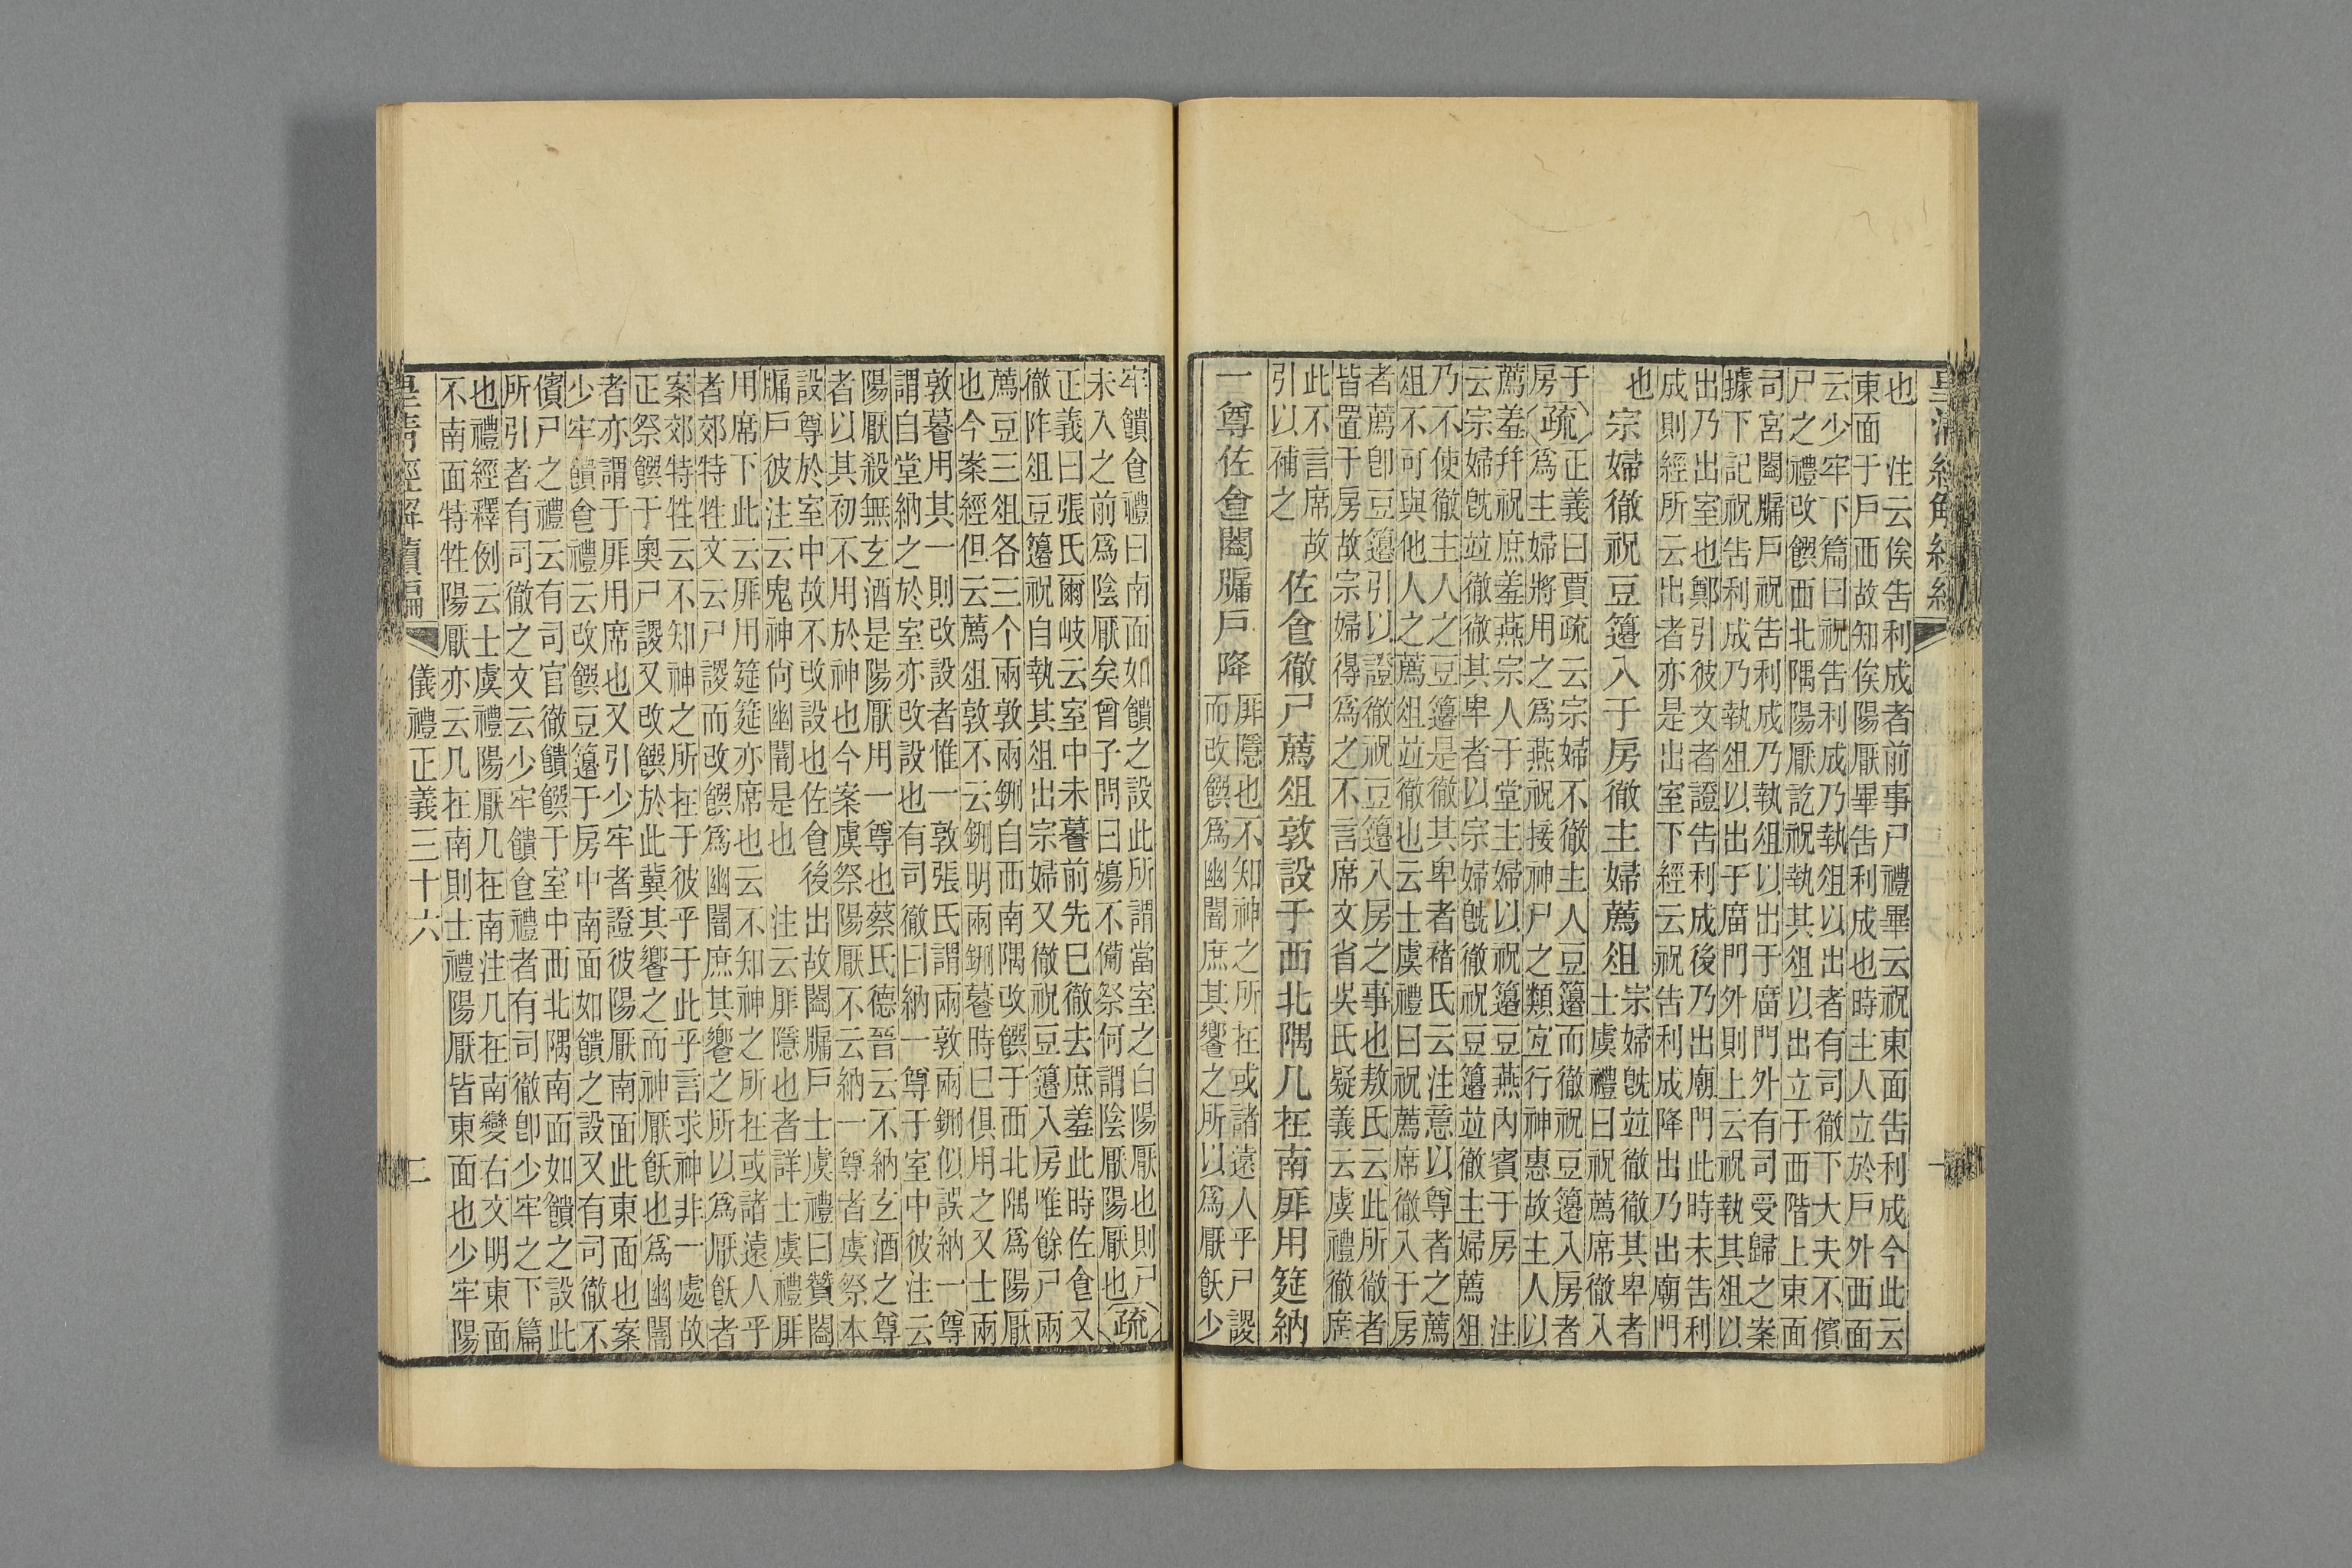 皇清經解續編
一
也　注云俟告利成者前事尸禮畢云祝東面告利成今此云
東面于戶西故知俟陽厭畢告利成也時主人立於戶外西面
云少牢下篇曰祝告利成乃執俎以出者有司徹下大夫不儐
尸之禮改饌西北隅陽厭訖祝執其俎以出立于西階上東面
司宮闔牖戶祝告利成乃執俎以出于廟門外有司受歸之案
據下記祝告利成乃執俎以出于廟門外則上云祝執其俎以
出乃出室也鄭引彼文者證告利成後乃出廟門此時未告利
成則經所云出者亦是出室下經云祝告利成降出乃出廟門
也
宗婦徹祝豆籩入于房徹主婦薦俎
宗婦旣並徹徹其卑者
士虞禮曰祝薦席徹入
于
房
疏
正義曰賈疏云宗婦不徹主人豆籩而徹祝豆籩入房者
爲主婦將用之爲燕祝接神尸之類宜行神惠故主人以
薦羞幷祝庶羞燕宗人于堂主婦以祝籩豆燕內賓于房　注
云宗婦旣並徹徹其卑者以宗婦旣徹祝豆籩並徹主婦薦俎
乃不使徹主人之豆籩是徹其卑者褚氏云注意以尊者之薦
俎不可與他人之薦俎並徹也云士虞禮曰祝薦席徹入于房
者薦卽豆籩引以證徹祝豆籩入房之事也敖氏云此所徹者
皆置于房故宗婦得爲之不言席文省吳氏疑義云虞禮徹席
此不言席故
引以補之
佐食徹尸薦俎敦設于西北隅几在南厞用筵納
一尊佐食闔牖戶降
厞隱也不知神之所在或諸遠人乎尸謖
而改饌爲幽闇庶其饗之所以爲厭飫少
牢饋食禮曰南面如饋之設此所謂當室之白陽厭也則尸
未入之前爲陰厭矣曾子問曰殤不備祭何謂陰厭陽厭也
疏
正義曰張氏爾岐云室中未養前先已徹去庶羞此時佐食又
徹阼俎豆籩祝自執其俎出宗婦又徹祝豆籩入房唯餘尸兩
薦豆三俎各三个兩敦兩鉶自西南隅改饌于西北隅爲陽厭
也今案經但云薦俎敦不云鉶明兩鉶養時已俱用之又士兩
敦養用其一則改設者惟一敦張氏謂兩敦兩鉶似誤納一尊
謂自堂納之於室亦改設也有司徹曰納一尊于室中彼注云
陽厭殺無玄酒是陽厭用一尊也蔡氏德晉云不納玄酒之尊
者以其初不用於神也今案虞祭陽厭不云納一尊者虞祭本
設尊於室中故不改設也佐食後出故闔牖戶士虞禮曰贊闔
牖戶彼注云鬼神尙幽闇是也　注云厞隱也者詳士虞禮厞
用席下此云厞用筵筵亦席也云不知神之所在或諸遠人乎
者郊特牲文云尸謖而改饌爲幽闇庶其饗之所以爲厭飫者
案郊特牲云不知神之所在于彼乎于此乎言求神非一處故
正祭饌于奧尸謖又改饌於此冀其饗之而神厭飫也爲幽闇
者亦謂于厞用席也又引少牢者證彼陽厭南面此東面也案
少牢饋食禮云改饌豆籩于房中南面如饋之設又有司徹不
儐尸之禮云有司官徹饋饌于室中西北隅南面如饋之設此
所引者有司徹之文云少牢饋食禮者有司徹卽少牢之下篇
也禮經釋例云士虞禮陽厭几在南注几在南變右文明東面
不南面特牲陽厭亦云几在南則士禮陽厭皆東面也少牢陽
皇清經解續編
儀禮正義三十六
二